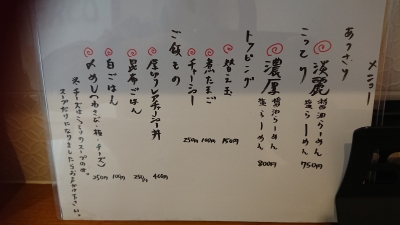 メニュー
あっさり
淡麗 醤油らーめん 塩らーめん 750円
こってり
濃厚 醤油らーめん 塩らーめん 800円
トッピング
替え玉 150円
煮たまご 100円
チャーシュー 250円
ご飯もの
厚切りレアチャーシュー丼 400円
昆布ごはん 250円
白ごはん 100円
〆めし(わさび・梅・チーズ) 250円
※チーズはこってりのスープのみ。
スープだけになりましたらお声かけ下さい。